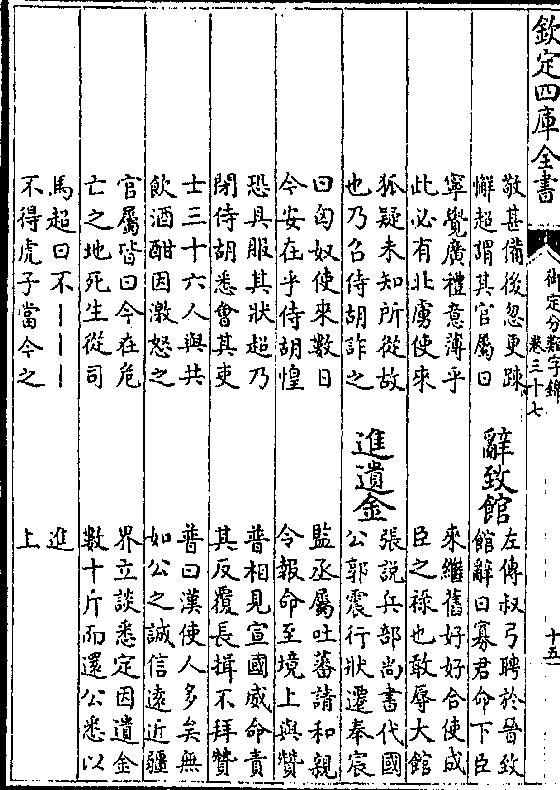 欽定四庫全書
御定分類字錦
卷三十七
十五
敬甚備後忽更踈
懈超謂其官屬曰
寧覺廣禮意薄乎
此必有北虜使來
狐疑未知所從故
也乃召侍胡詐之
曰匈奴使來數日
今安在乎侍胡惶
恐具服其狀超乃
閉侍胡悉會其吏
士三十六人與共
飲酒酣因激怒之
官屬皆曰今在危
亡之地死生從司
馬超曰不｜｜｜
不得虎子當今之
辭致館
左傳叔弓聘於晉致
館辭曰寡君命下臣
來繼舊好好合使成
臣之禄也敢辱大館
進遺金
張說兵部尚書代國
公郭震行狀遷奉宸
監丞屬吐蕃請和親
令報命至境上與贊
普相見宣國威命責
其反覆長揖不拜贊
普曰漢使人多矣無
如公之誠信遠近疆
界立談悉定因遺金
數十斤而還公悉以
進
上